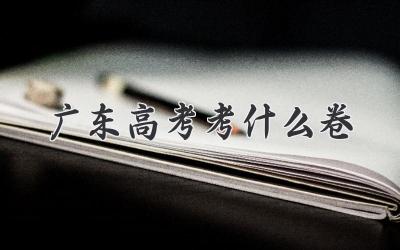 广东高考考什么卷